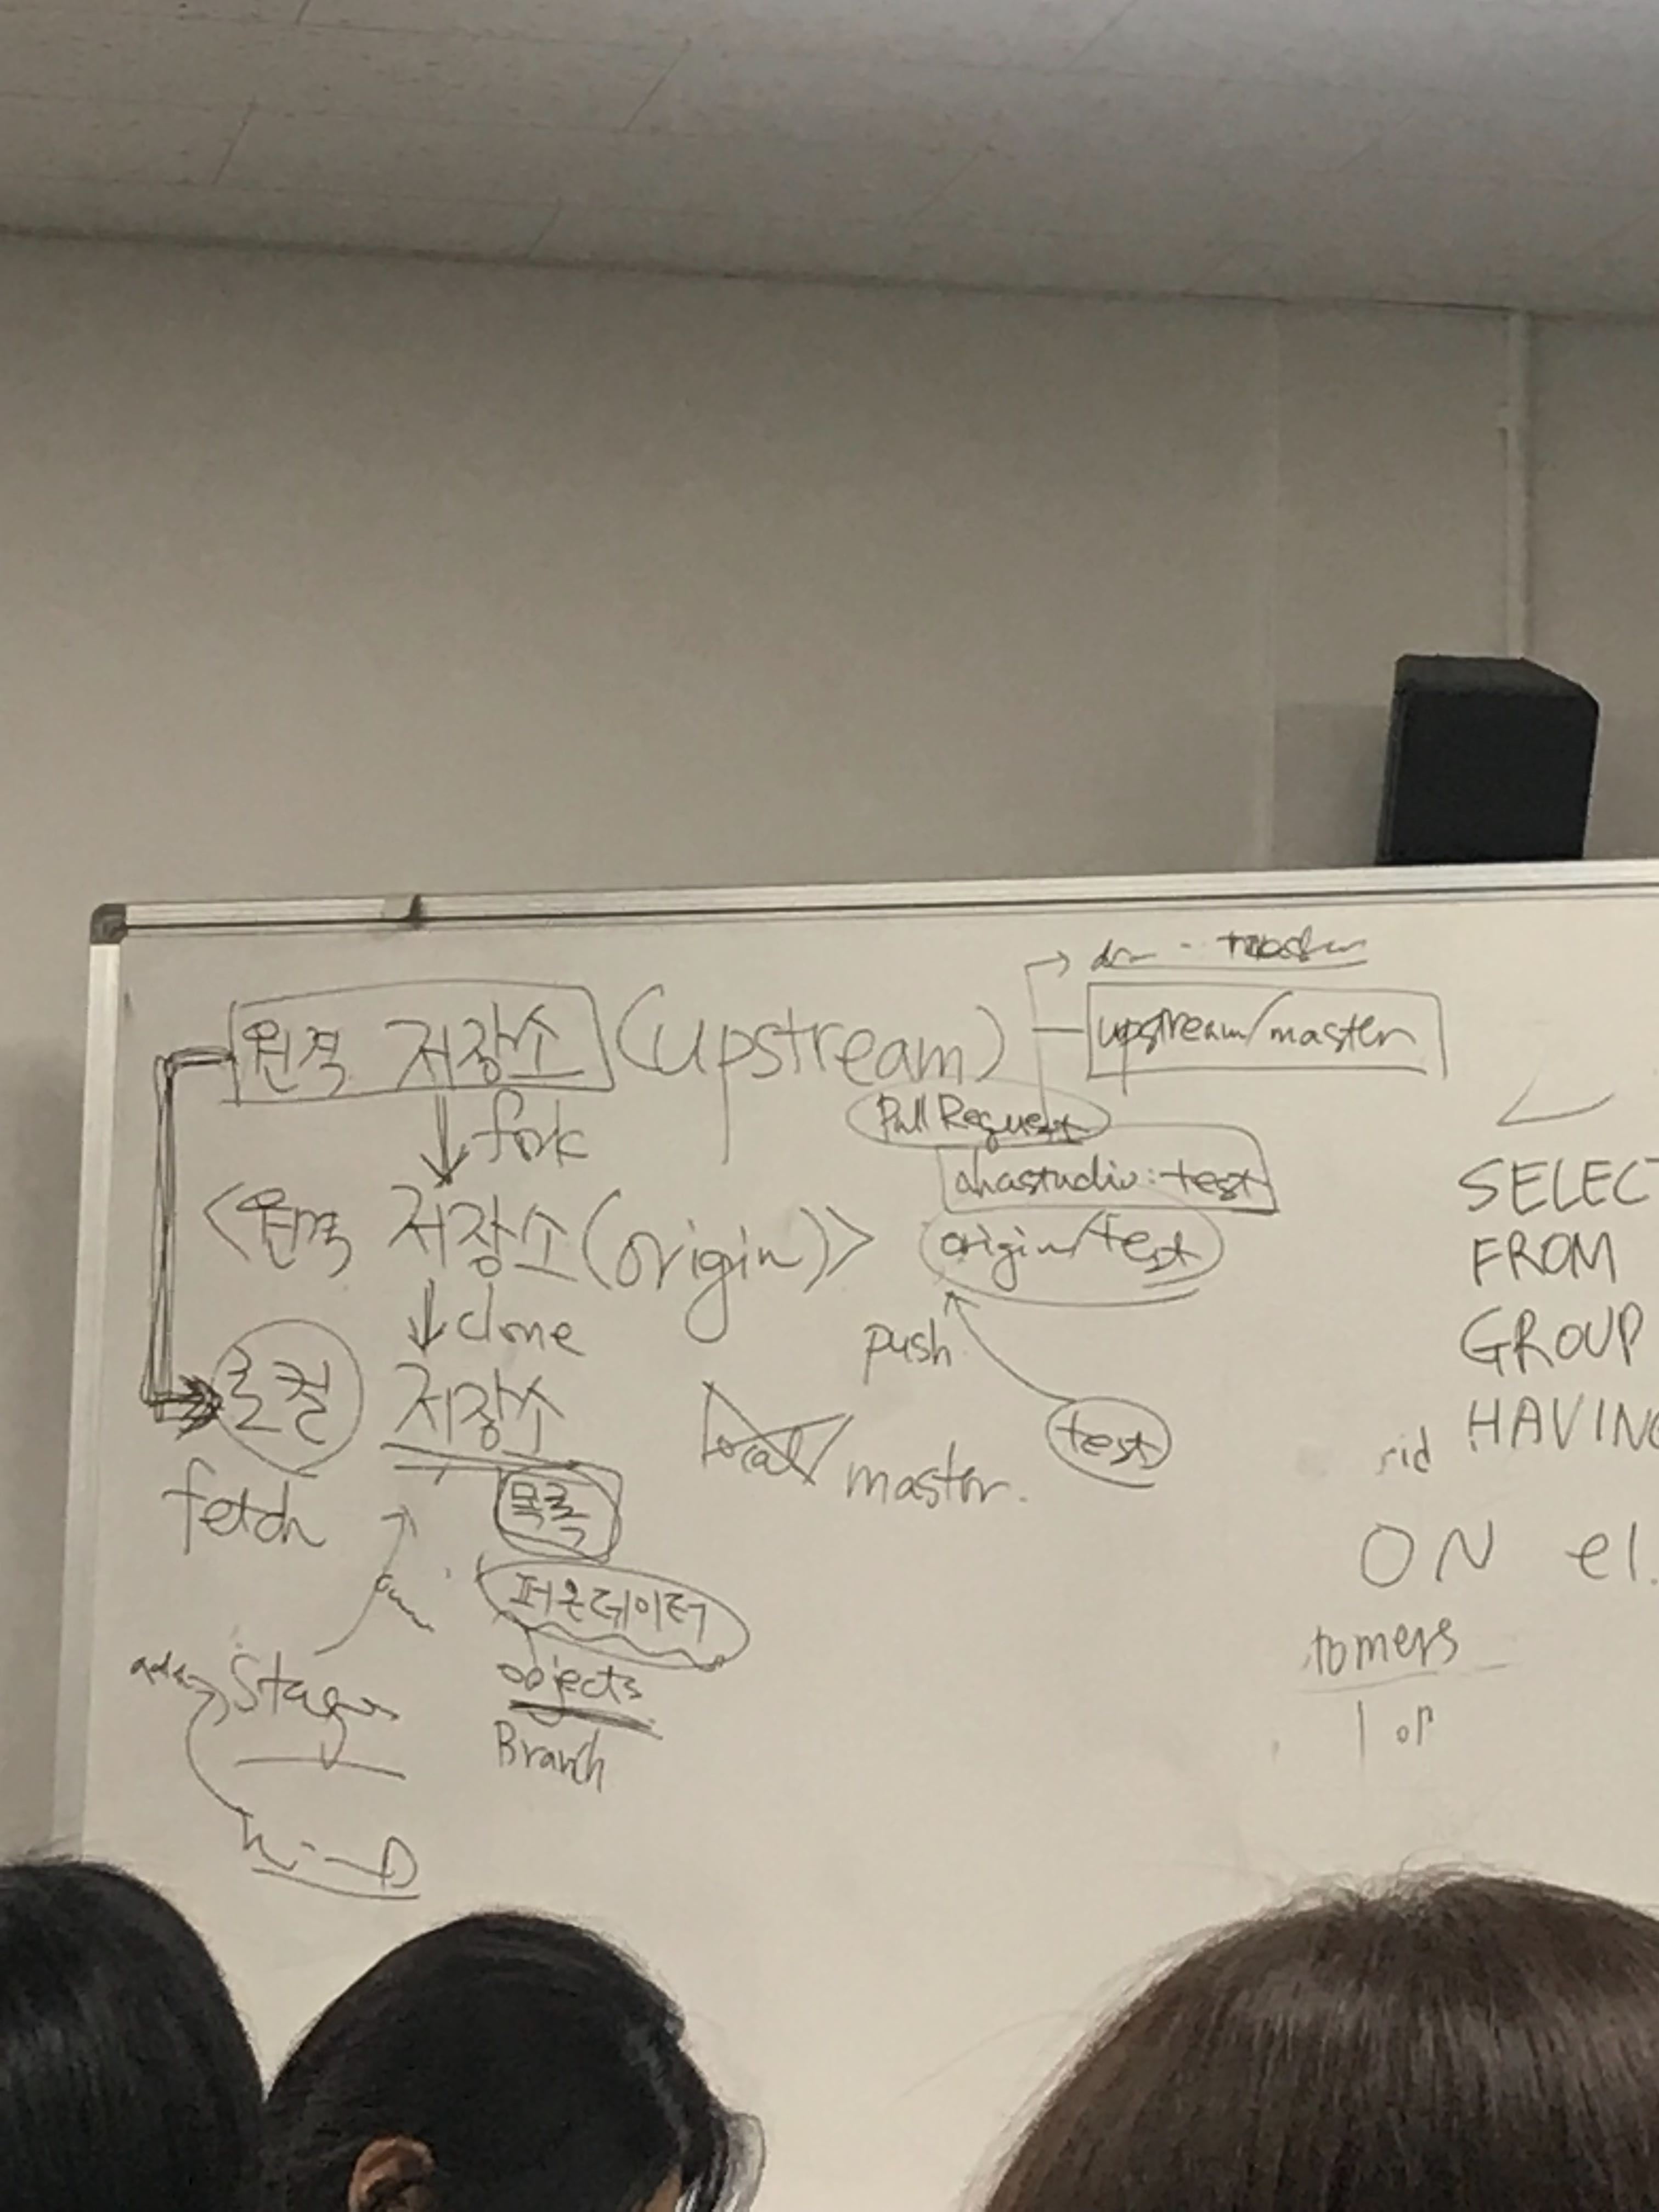 원격 저장소 (upstream)
upstream/master
fork
Pull Request
ahastudio:test
<원격 저장소(origin)>
origin/test
clone
push
로컬 저장소
local
master.
test
fetch
목록
objects
Branch
SELEC
FROM
GROUP
HAVING
ON el.
tomers